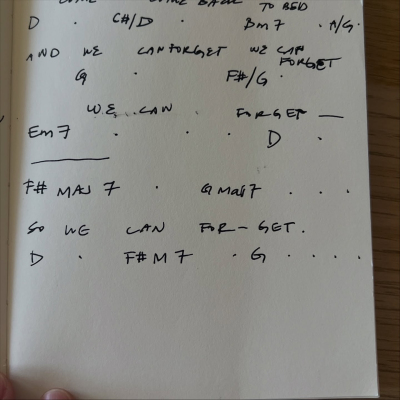 COME BACK TO BED
D . C#/D . Bm7 . A/G .
AND WE CAN FORGET WE CAN FORGET
G . F#/G .
WE CAN FORGET —
Em7 . . . D .
F# MAJ 7 . G Maj7 . . .
SO WE CAN FOR-GET.
D . F# M 7 . G . . . .